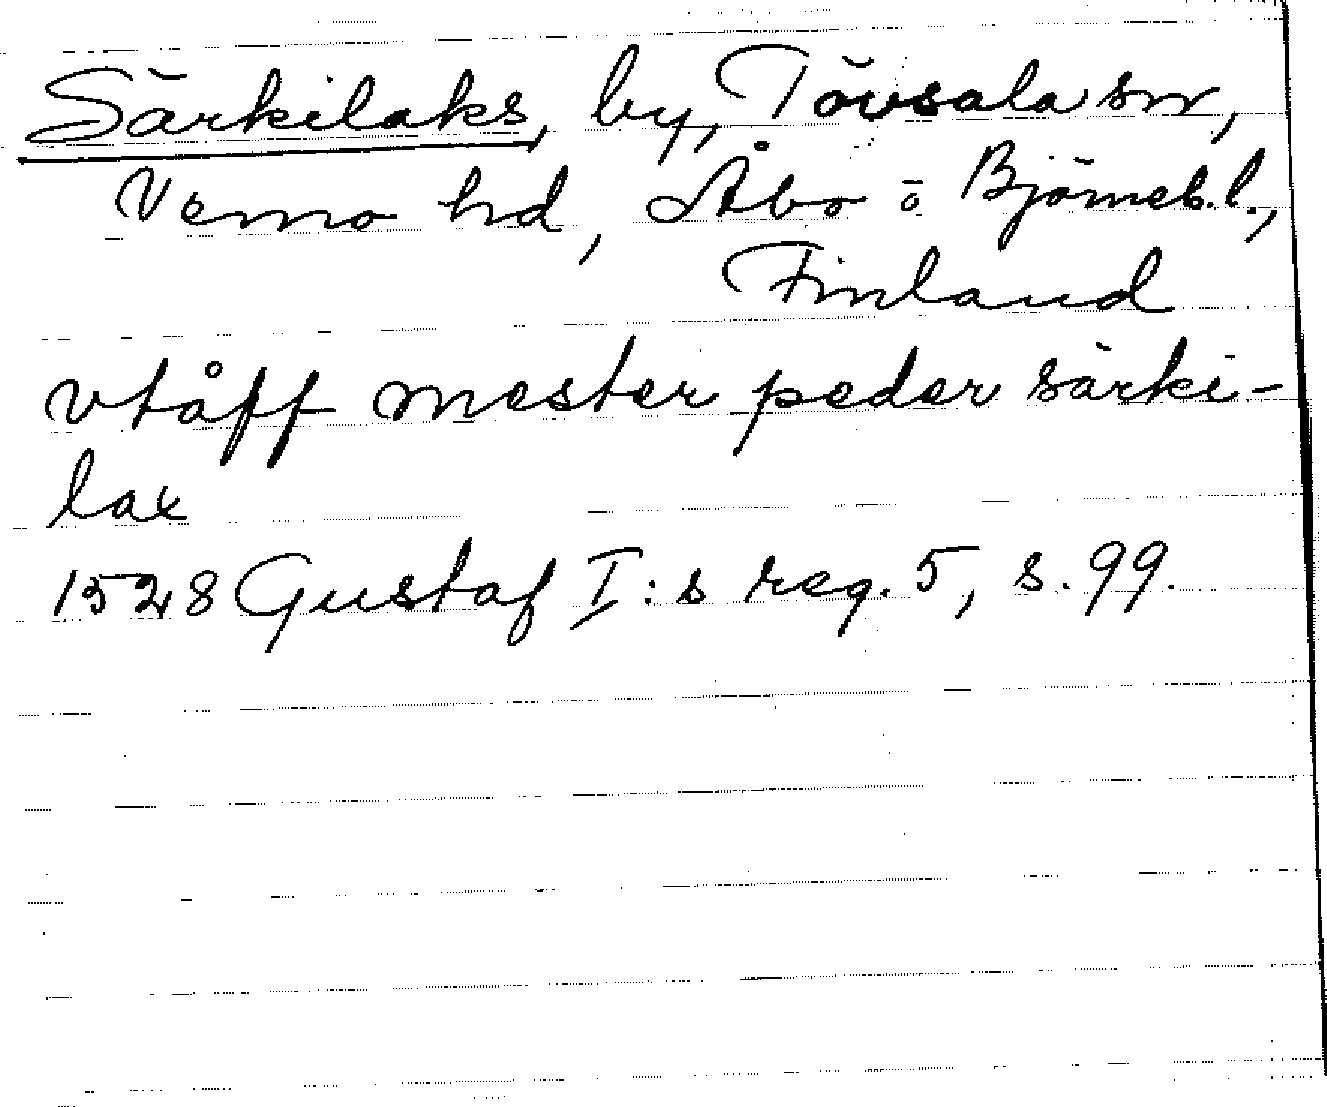 Särkilaks, by, Tövsala sn,
Vemo hd, Åbo o Björneb.l.,
Finland
vtåff mester peder särki-
lax
1528 Gustaf I:s reg. 5, s. 99.